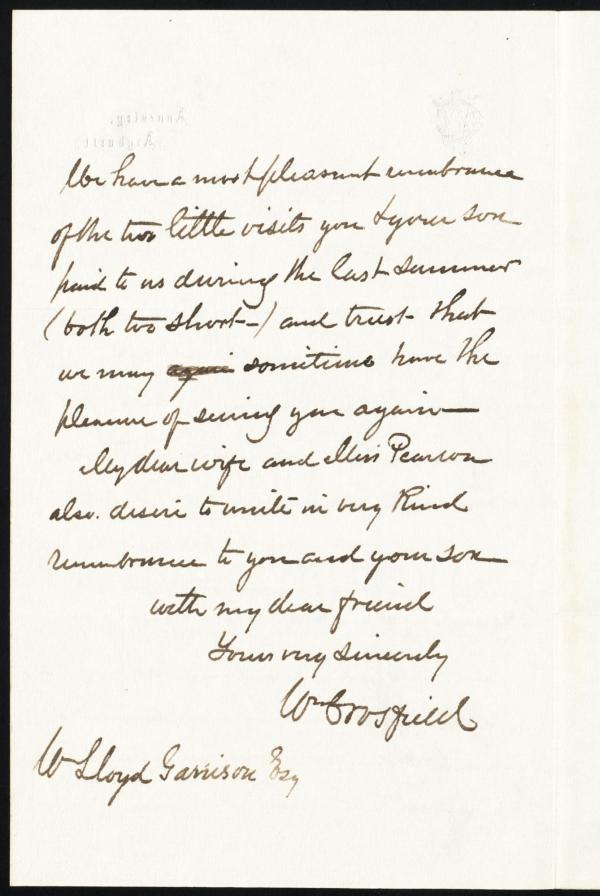 We have a most pleasant remembrance
of the two little visits you & your son
paid to us during the last summer
(both too short—) and trust that
we may again sometime have the
pleasure of seeing you again—
My dear wife and Miss Pearson
also. desire to unite in very kind
remembrance to you and your son
with my dear friend
Yours very sincerely
Wm Crosfield
W Lloyd Garrison Esq